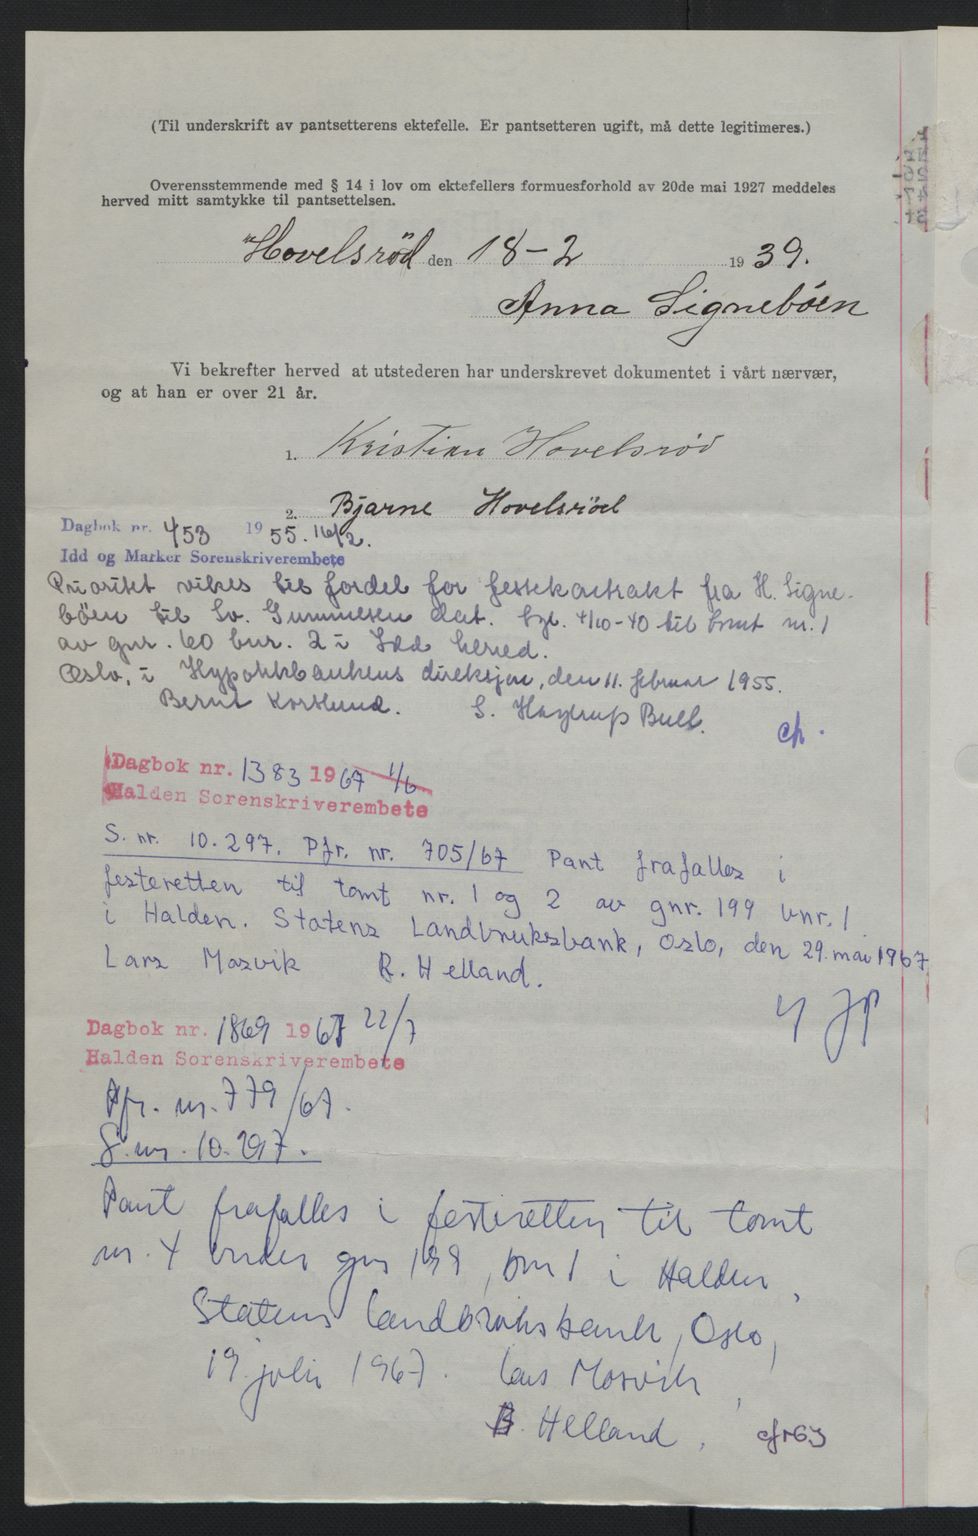 (Til underskrift av pantsetterens ektefelle. Er pantsetteren ugift, må dette legitimeres.)
Overensstemmende med § 14 i lov om ektefellers formuesforhold av 20de mai 1927 meddeles
herved mitt samtykke til pantsettelsen.
Hovelsrød den 18-2 1939.
Anna Signebøen
Vi bekrefter herved at utstederen har underskrevet dokumentet i vårt nærvær,
og at han er over 21 år.
1. Kristian Hovelsrød
2. Bjarne Hovelsrød
Dagbok nr. 453 1955. 16/2.
Idd og Marker Sorenskriverembete
Prioritet vikes til fordel for festekontrakt fra H. Signe-
bøen til Sv. Gummesen dat. tgl. 4/10-40 til tomt nr. 1
av gnr. 60 bnr. 2 i Idd herred.
Oslo, i Hypotekbankens direksjon, den 11. februar 1955.
Bernt Korslund. S. Høyrup Bull.
Dagbok nr. 1383 1967 1/6
Halden Sorenskriverembete
S. nr. 10.297. Pfr. nr. 705/67 Pant frafalles i
festeretten til tomt nr. 1 og 2 av gnr. 199 bnr. 1
i Halden. Statens Landbruksbank, Oslo, den 29. mai 1967
Lars Masvik R. Helland.
Dagbok nr. 1869 1967 22/7
Halden Sorenskriverembete
Pfr. nr. 779/67.
S. nr. 10.297.
Pant frafalles i festeretten til tomt
nr. 4 under gnr 199, bnr 1 i Halden,
Statens landbruksbank, Oslo,
19. juli 1967. Lars Masvik,
B. Helland.